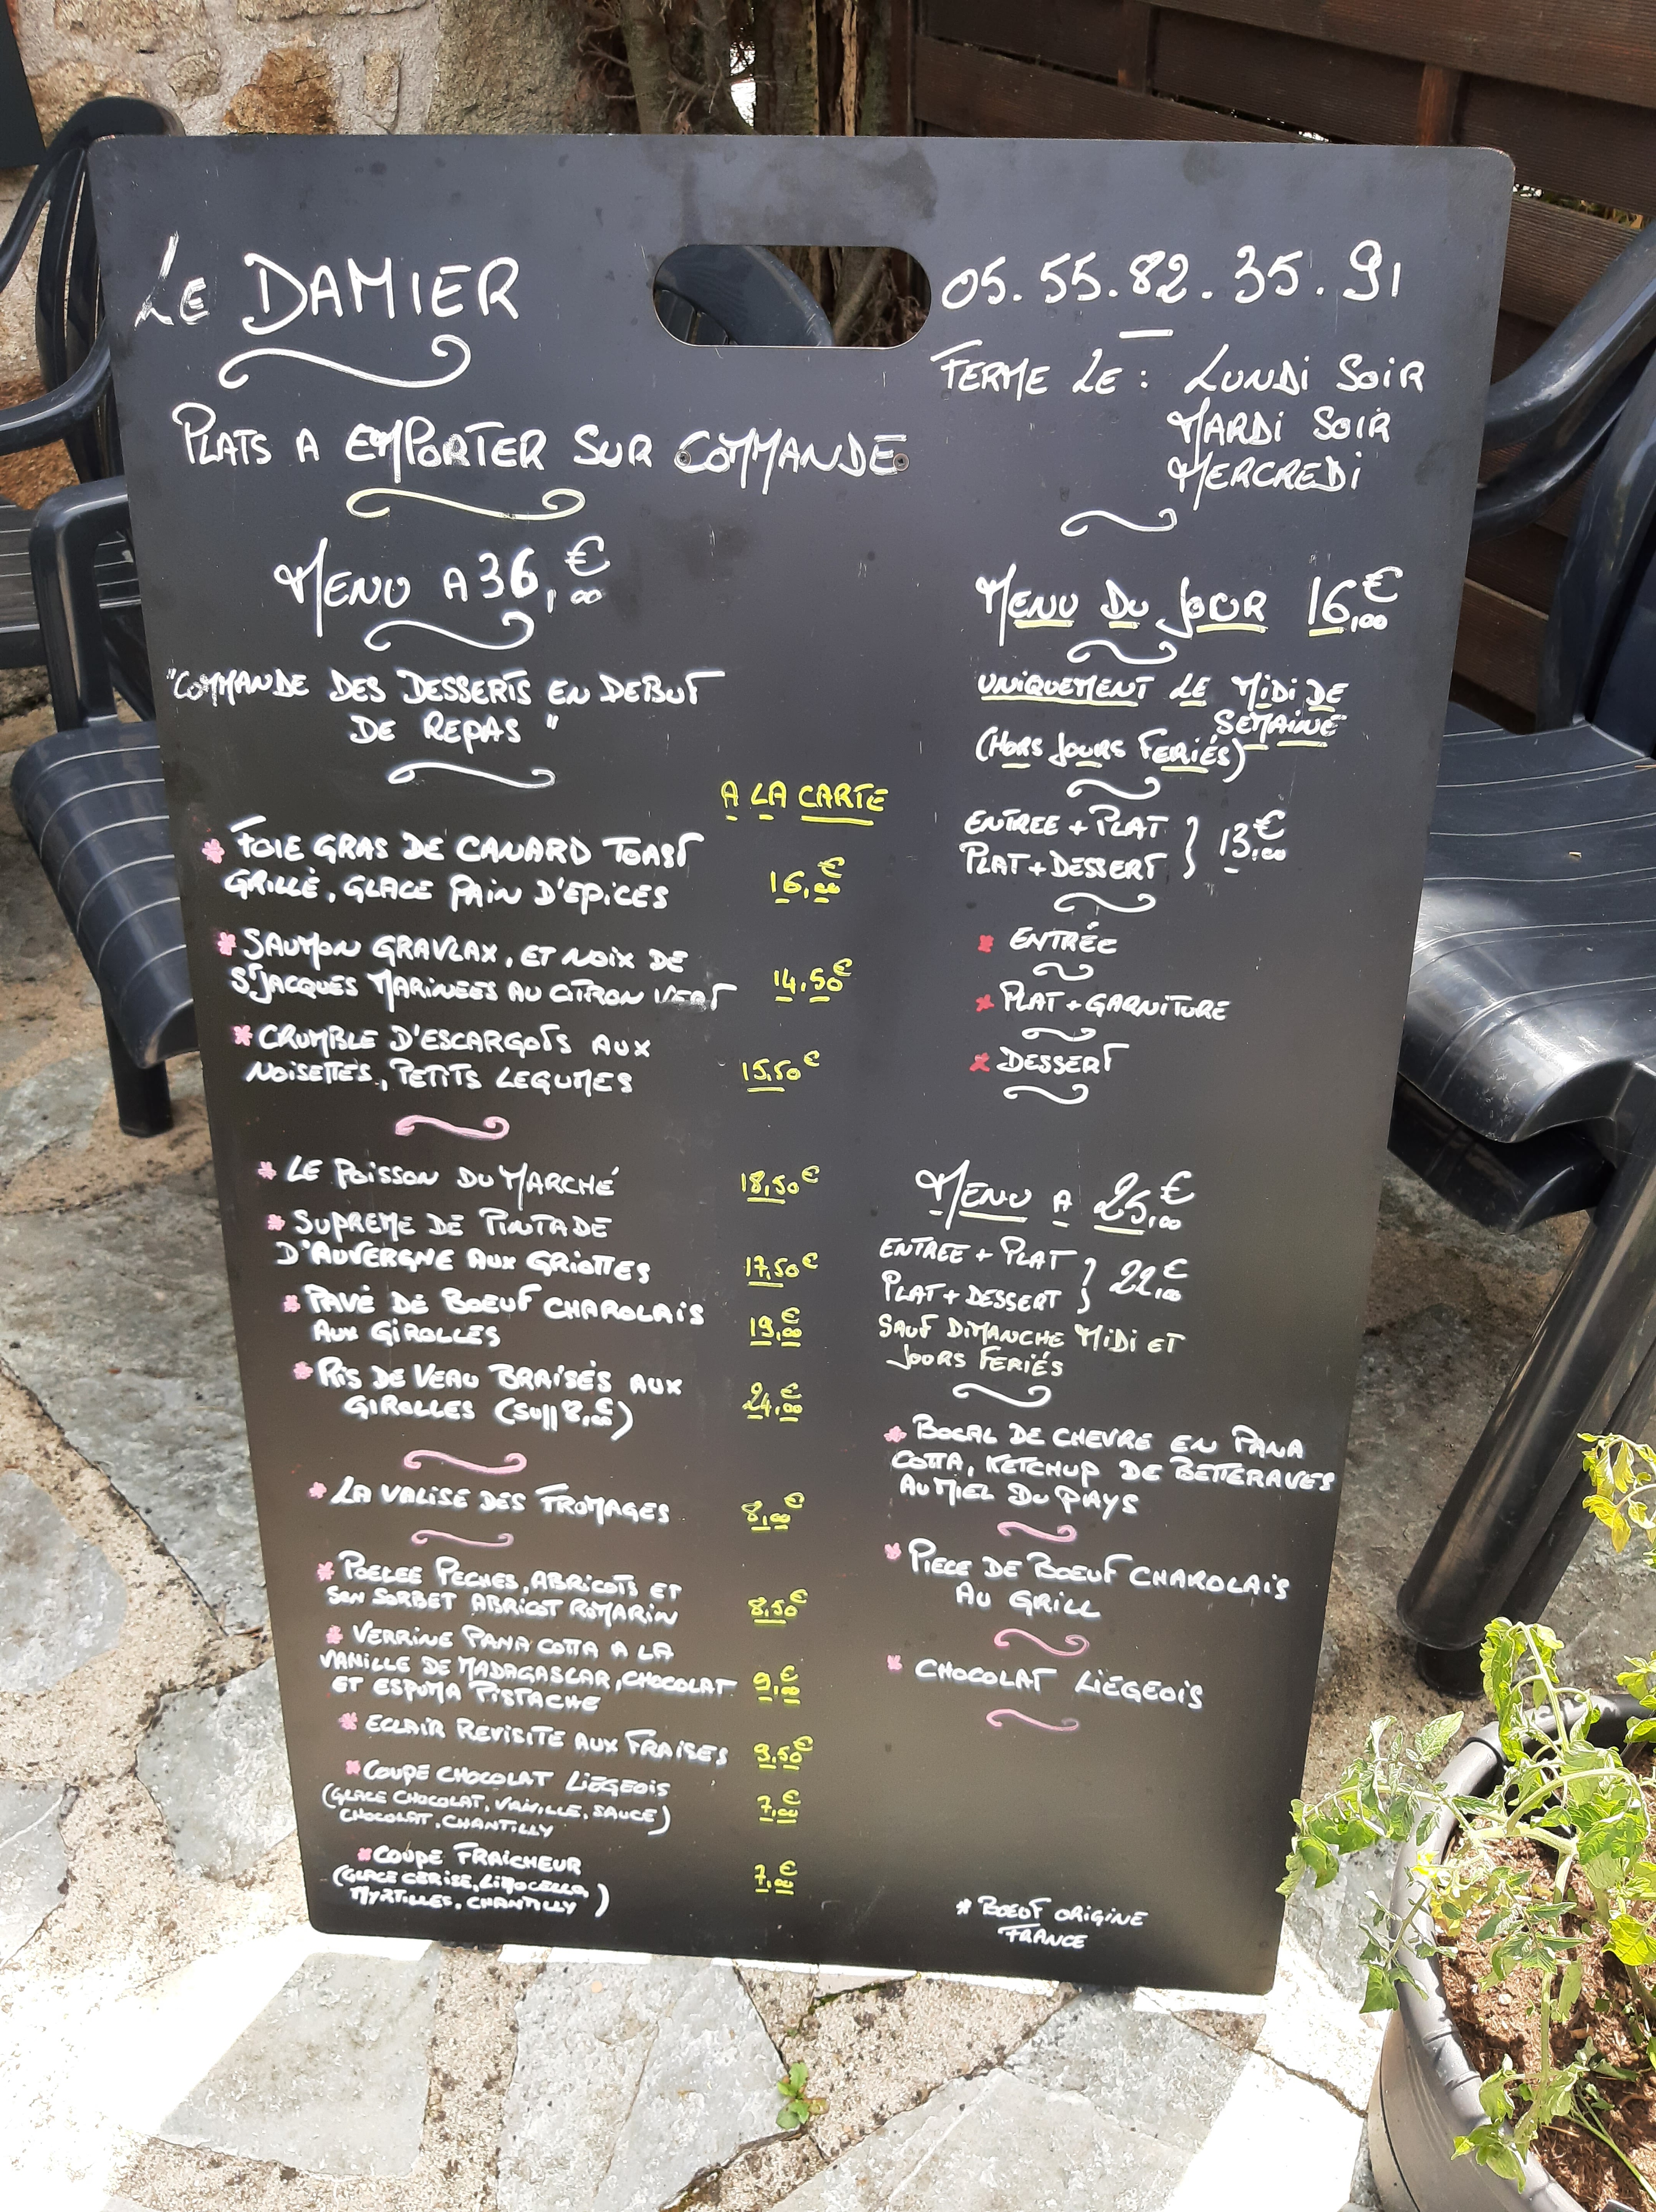 LE DAMIER
05.55.82.35.91
FERME LE : LUNDI SOIR
MARDI SOIR
MERCREDI
PLATS A EMPORTER SUR COMMANDE
MENU A 36,00€
"COMMANDE DES DESSERTS EN DEBUT
DE REPAS"
A LA CARTE
* FOIE GRAS DE CANARD TOAST
GRILLÉ, GLACE PAIN D'EPICES 16,00€
* SAUMON GRAVLAX, ET NOIX DE
ST JACQUES MARINEES AU CITRON VERT 14,50€
* CRUMBLE D'ESCARGOTS AUX
NOISETTES, PETITS LEGUMES 15,50€
* LE POISSON DU MARCHÉ 18,50€
* SUPREME DE PINTADE
D'AUVERGNE AUX GRIOTTES 17,50€
* PAVÉ DE BOEUF CHAROLAIS
AUX GIROLLES 19,00€
* RIS DE VEAU BRAISÉS AUX
GIROLLES (SUPP 8,00€) 24,00€
* LA VALISE DES FROMAGES 8,00€
* POELEE PECHES, ABRICOTS ET
SON SORBET ABRICOT ROMARIN 8,50€
* VERRINE PANA COTTA A LA
VANILLE DE MADAGASCAR, CHOCOLAT
ET ESPUMA PISTACHE 9,00€
* ECLAIR REVISITE AUX FRAISES 9,50€
* COUPE CHOCOLAT LIÉGEOIS
(GLACE CHOCOLAT, VANILLE, SAUCE)
CHOCOLAT, CHANTILLY 7,00€
* COUPE FRAICHEUR
(GLACE CERISE, LIMOCELLO,
MYRTILLES, CHANTILLY) 7,00€
MENU DU JOUR 16,00€
UNIQUEMENT LE MIDI DE
SEMAINE
(HORS JOURS FERIÉS)
ENTREE + PLAT
PLAT + DESSERT } 13,00€
* ENTRÉE
* PLAT + GARNITURE
* DESSERT
MENU A 25,00€
ENTREE + PLAT
PLAT + DESSERT } 22,00€
SAUF DIMANCHE MIDI ET
JOURS FERIÉS
* BOCAL DE CHEVRE EN PANA
COTTA, KETCHUP DE BETTERAVES
AU MIEL DU PAYS
* PIECE DE BOEUF CHAROLAIS
AU GRILL
* CHOCOLAT LIÉGEOIS
* BOEUF ORIGINE
FRANCE